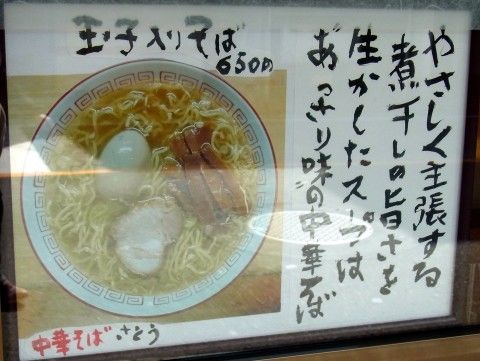 玉子入りそば
650円
やさしく主張する
煮干しの旨さを
生かしたスープは
あっさり味の中華そば
中華そば さとう